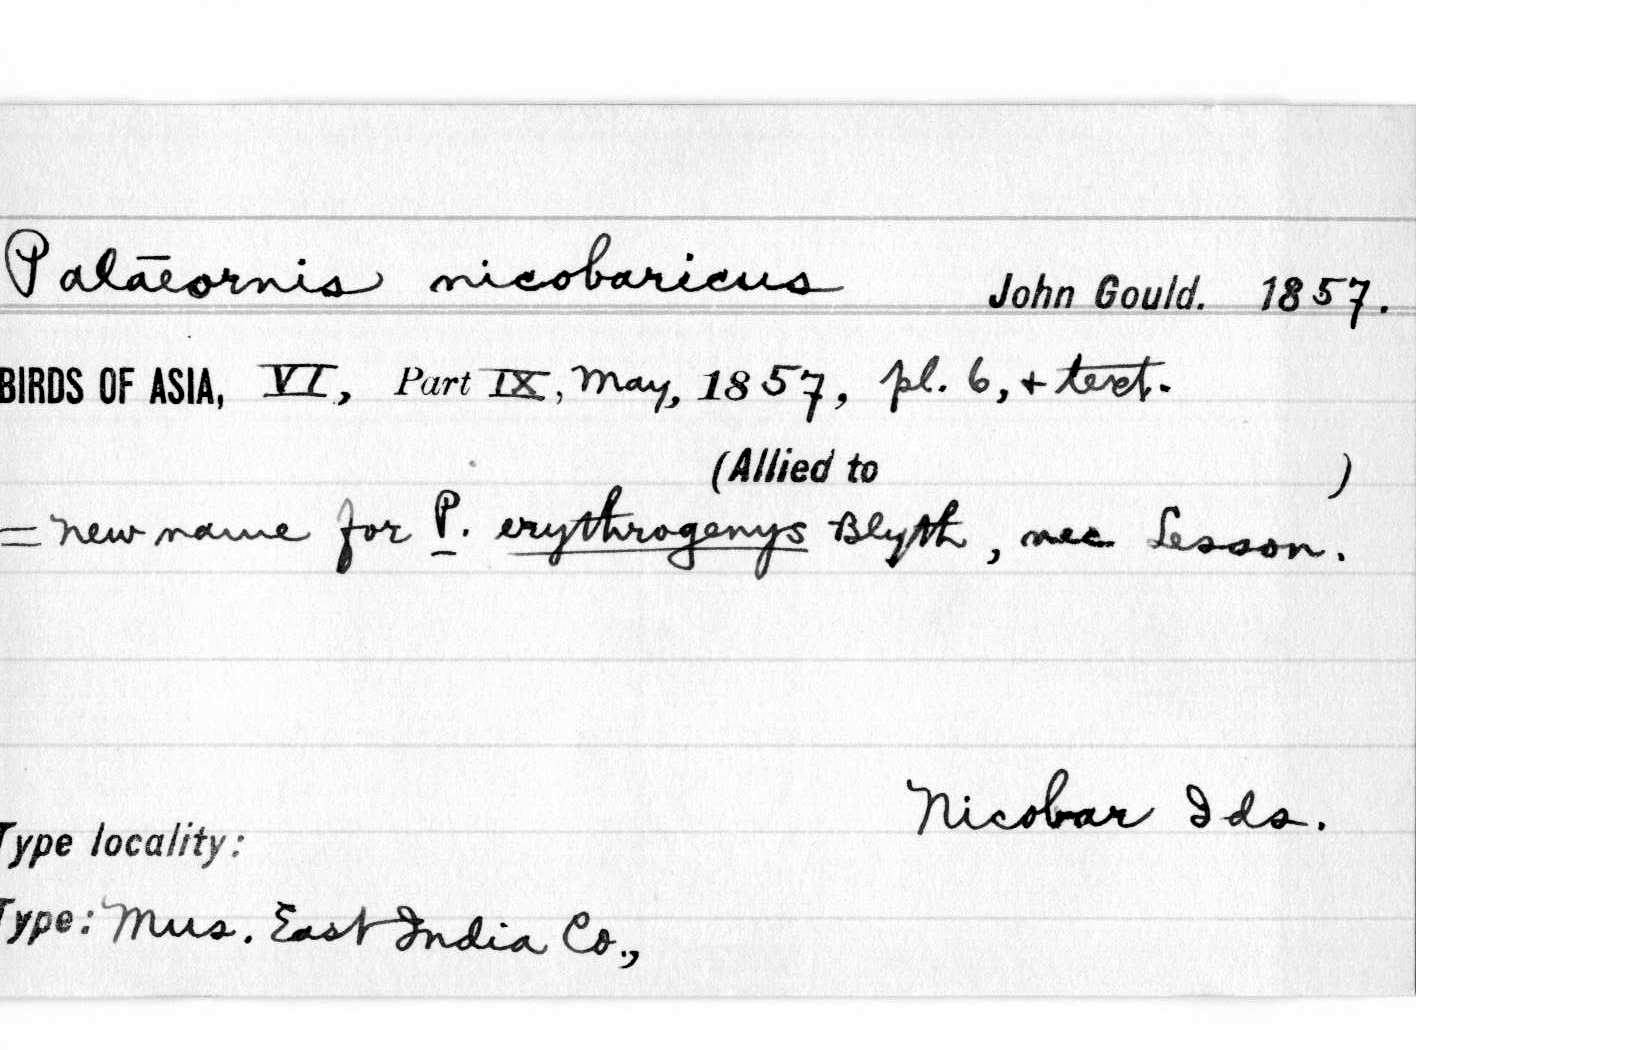 Palaeornis nicobaricus John Gould. 1857.
BIRDS OF ASIA, VI, Part IX, May, 1857, pl. 6, + text.
(Allied to )
= new name for P. erythrogenys Blyth, nec Lesson.
Nicobar Ids.
Type locality:
Type: Mus. East India Co.,